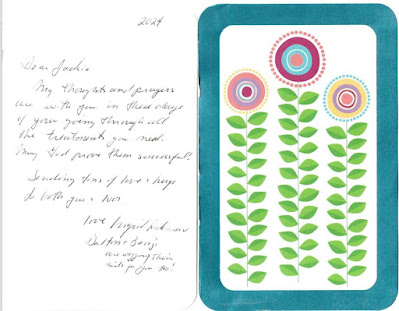 2024
Dear Jackie
My thoughts and prayers
are with you in these days
of your going through all
the treatments you need.
May God prove them successful!!
Sending tons of love & hugs
to both you &
love Ingrid
are wagging their
tails for you too!